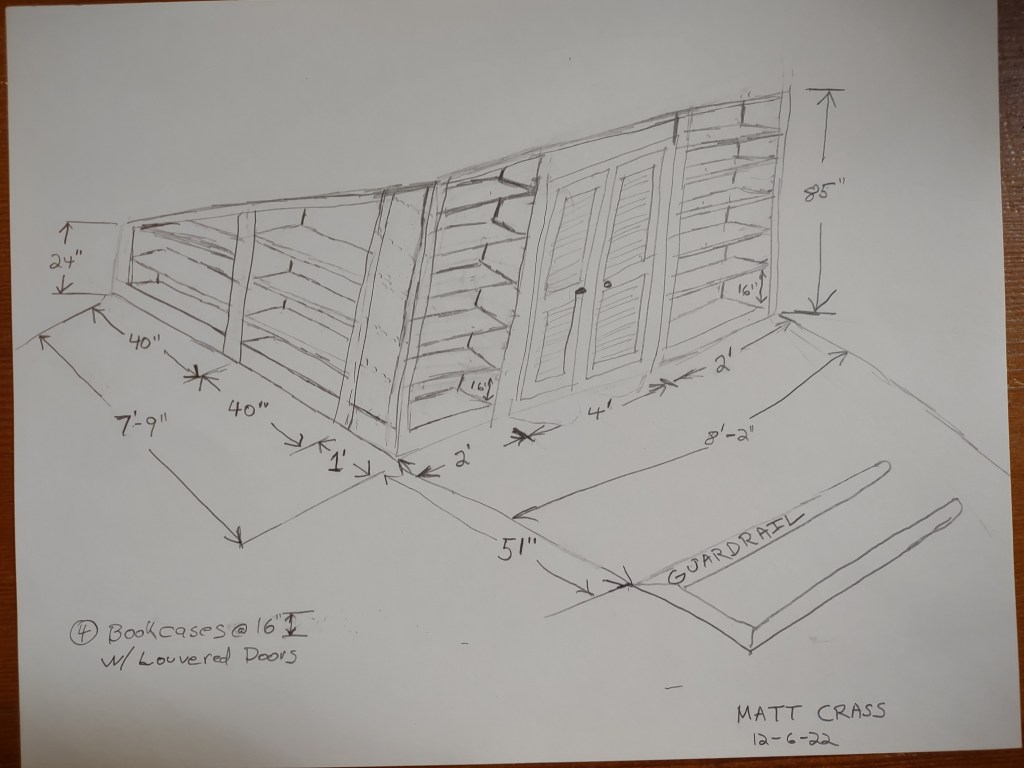 85"
24"
16"
40"
16"
2'
40"
4'
7'-9"
8'-2"
1'
2'
GUARDRAIL
51"
④ Bookcases @ 16"
w/ Louvered Doors
MATT CRASS
12-6-22